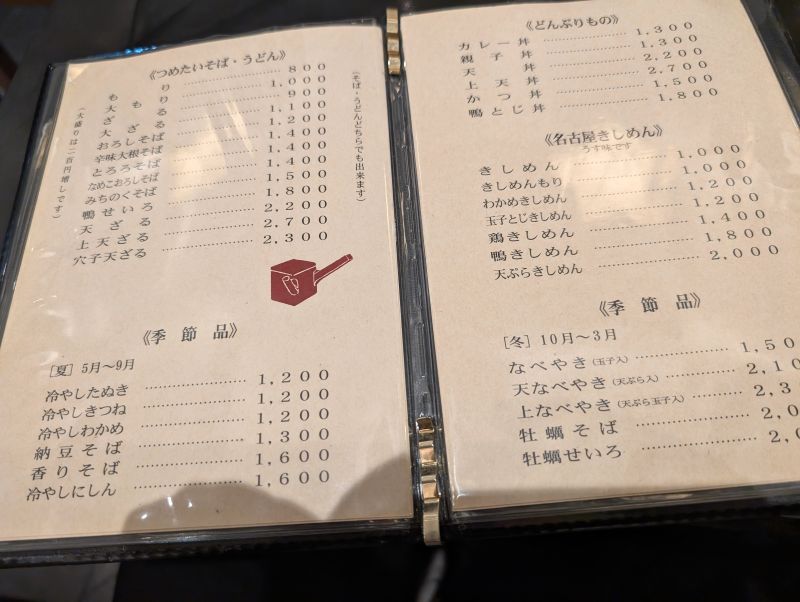 《つめたいそば・うどん》
(そば・うどんどちらでも出来ます)
(大盛りは二百円増しです)
もり 800
大もり 1,000
ざる 900
大ざる 1,100
おろしそば 1,200
辛味大根そば 1,400
とろろそば 1,400
なめこおろしそば 1,400
みちのくそば 1,500
鴨せいろ 1,800
天ざる 2,200
上天ざる 2,700
穴子天ざる 2,300
《季節品》
[夏] 5月〜9月
冷やしたぬき 1,200
冷やしきつね 1,200
冷やしわかめ 1,200
納豆そば 1,300
香りそば 1,600
冷やしにしん 1,600
《どんぶりもの》
カレー丼 1,300
親子丼 1,300
天丼 2,200
上天丼 2,700
かつ丼 1,500
鴨とじ丼 1,800
《名古屋きしめん》
うす味です
きしめん 1,000
きしめんもり 1,000
わかめきしめん 1,200
玉子とじきしめん 1,200
鶏きしめん 1,400
鴨きしめん 1,800
天ぷらきしめん 2,000
《季節品》
[冬] 10月〜3月
なべやき(玉子入) 1,50
天なべやき(天ぷら入) 2,10
上なべやき(天ぷら玉子入) 2,3
牡蠣そば 2,0
牡蠣せいろ 2,0